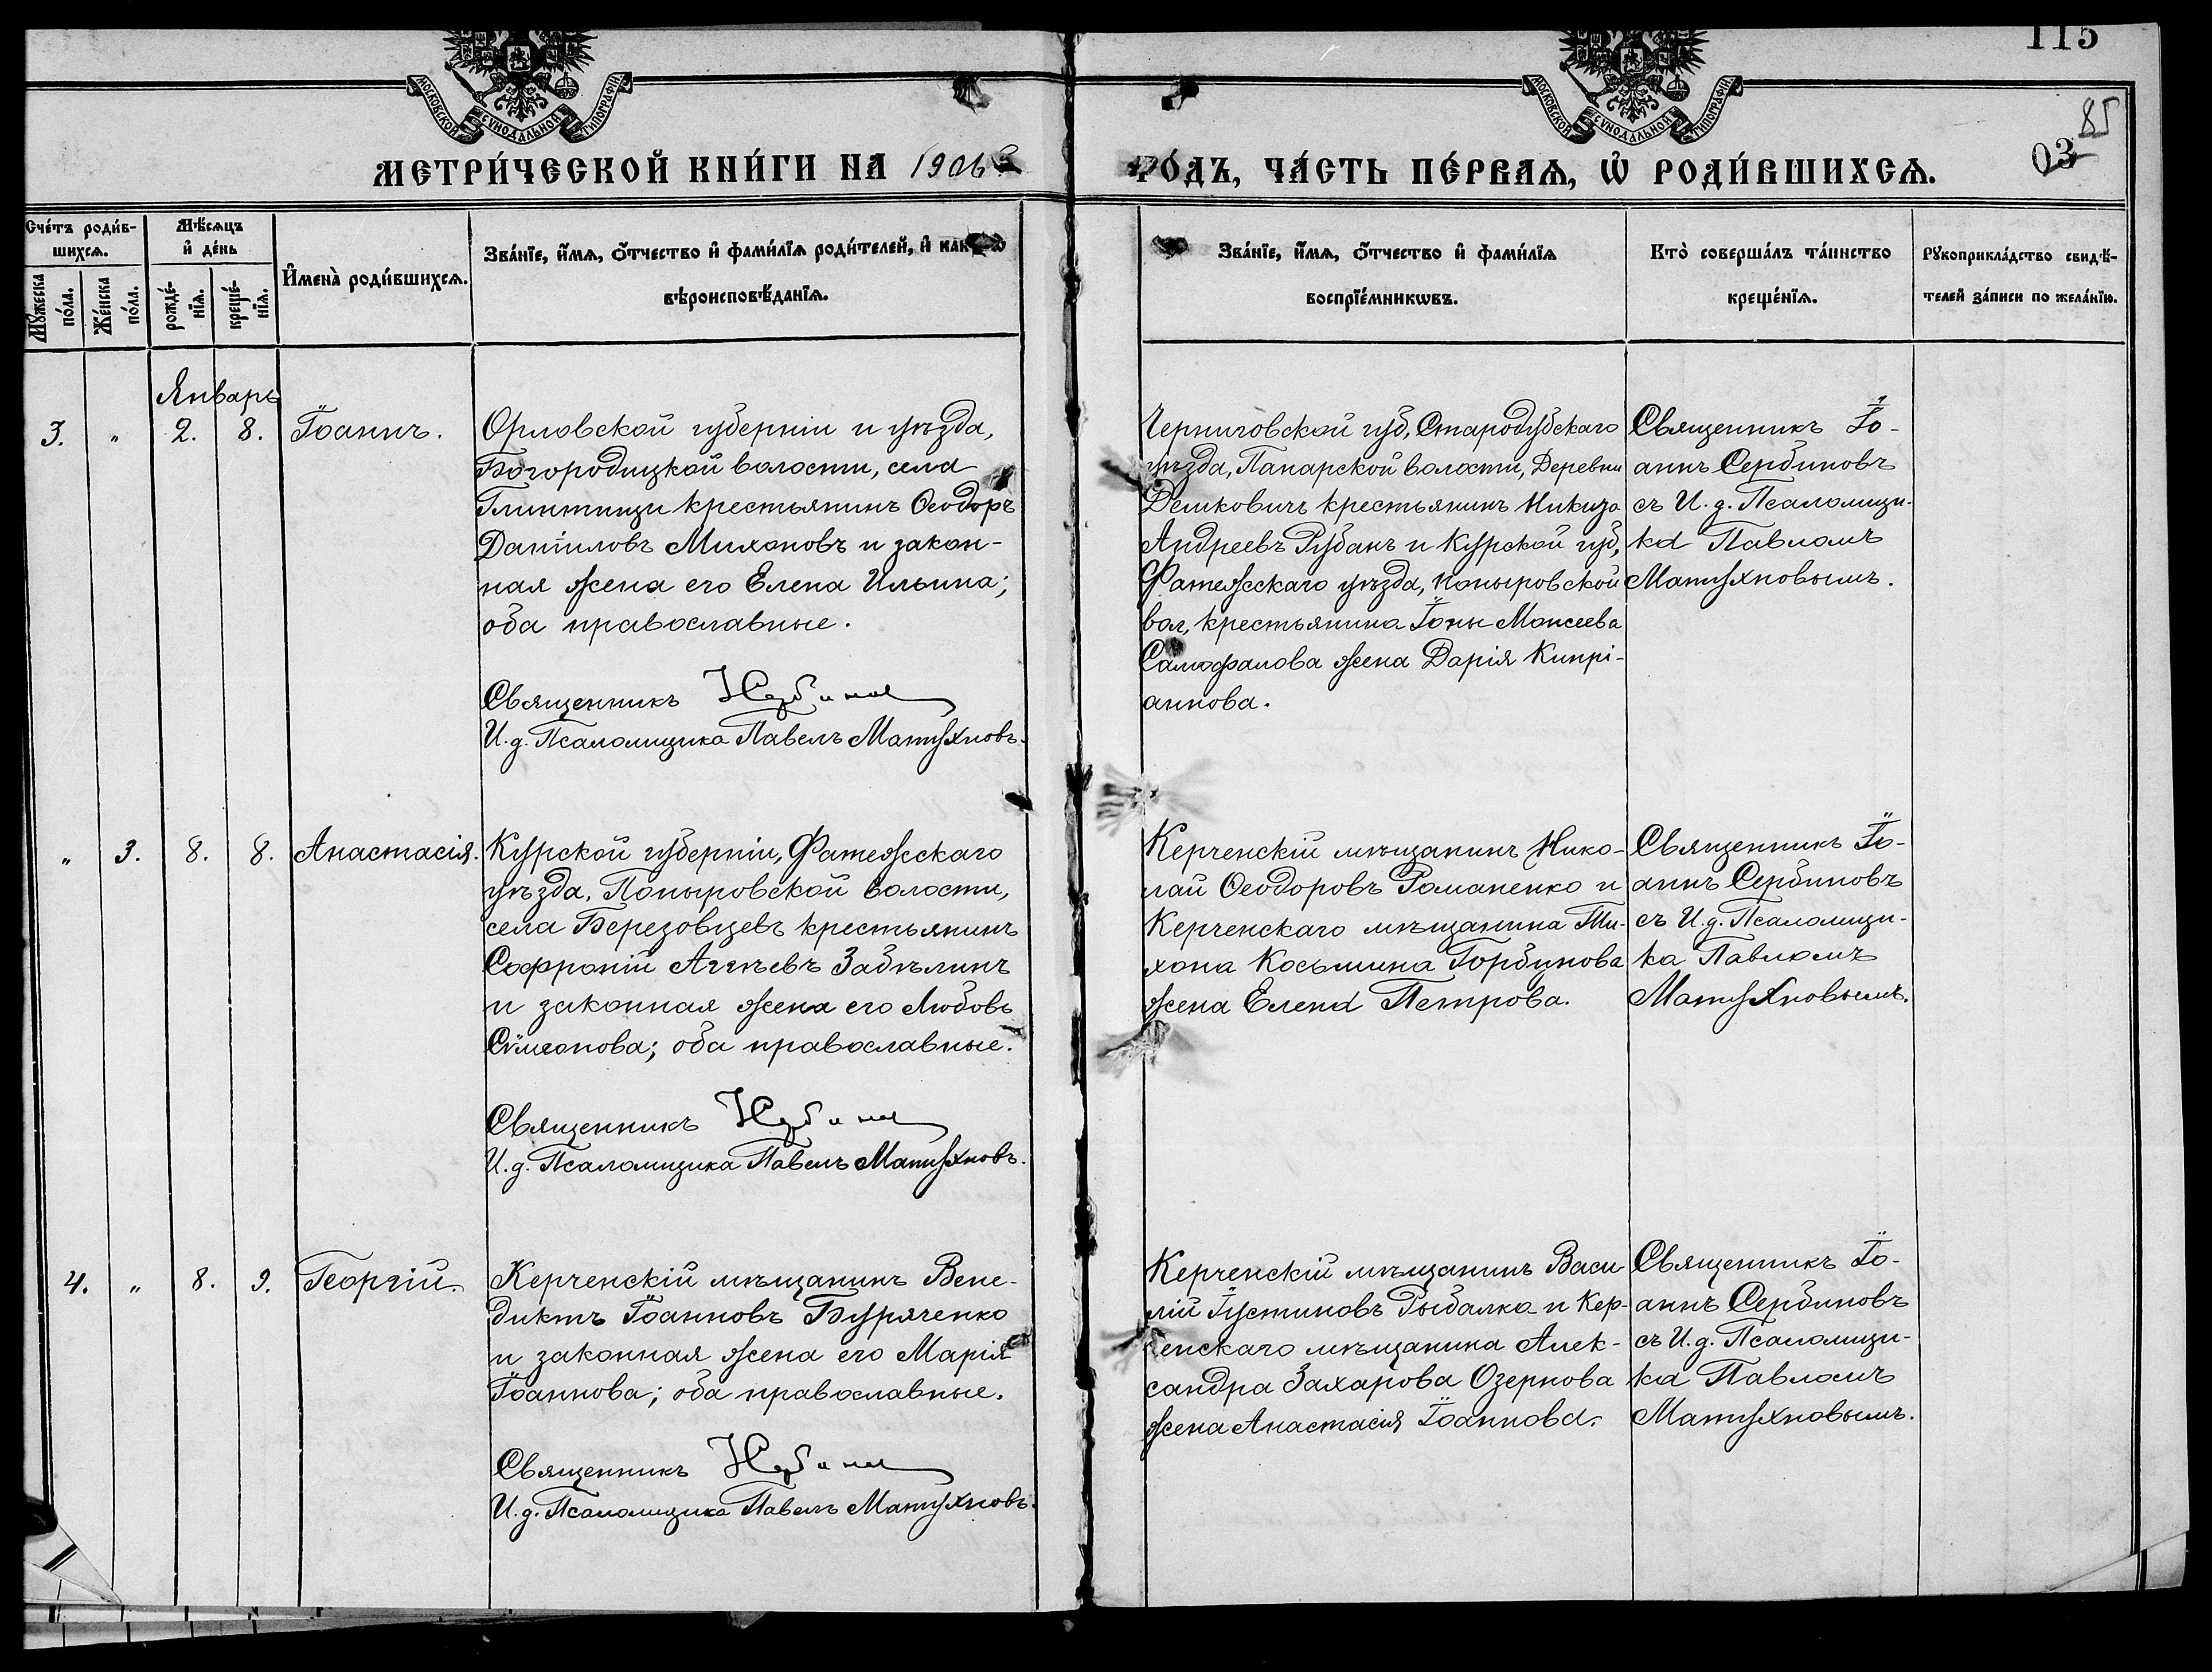 115
МОСКОВСКОЙ СѴНОДАЛЬНОЙ ТИПОГРАФІИ
МОСКОВСКОЙ СѴНОДАЛЬНОЙ ТИПОГРАФІИ
85
03
МЕТРИ́ЧЕСКОЙ КНИ́ГИ НА 1906
ГО́ДЪ, ЧА́СТЬ ПЕ́РВАѦ, Ѽ РОДИ́ВШИХСѦ.
Сче́тъ роди́в-
шихсѧ.
Мꙋ́жеска по́ла.
Же́нска по́ла.
Мѣ́сѧцъ
и҆ де́нь
рожде́-
нїѧ.
креще́-
нїѧ.
И҆мена̀ роди́вшихсѧ.
Зва́нїе, и҆́мѧ, ѻ҆́тчество и҆ фами́лїѧ роди́телей, и҆
вѣроисповѣ́данїѧ.
Зва́нїе, и҆́мѧ, ѻ҆́тчество и҆ фами́лїѧ
воспрїе́мникѡвъ.
Кто̀ соверша́лъ та́инство
креще́нїѧ.
Рꙋкоприкла́дство свидѣ́-
телей за́писи по жела́нїю.
Январь
3. " 2. 8. Іоаннъ.
Орловской губерніи и уѣзда,
Богородицкой волости, села
Глинтищи крестьянинъ Ѳеодоръ
Даніиловъ Михоновъ и закон-
ная жена его Елена Ильина;
оба православные.
Священникъ
И.д. Псаломщика Павелъ Матухновъ.
Черниговской губ, Стародубскаго
уѣзда, Папарской волости, Деревни
Демковичъ крестьянинъ Никита
Андреевъ Рубанъ и Курской губ,
Фатежскаго уѣзда, Поныровской
вол, крестьянина Іоны Моисеева
Самофалова жена Дарія Кипрі-
анова.
Священникъ Іо-
аннъ Сербиновъ
съ И.д. Псаломщи-
ка Павломъ
Матухновымъ.
" 3. 8. 8. Анастасія.
Курской губерніи, Фатежскаго
уѣзда, Поныровской волости,
села Березовцевъ крестьянинъ
Софроній Аггѣевъ Забѣлинъ
и законная жена его Любовь
Сѵмеонова; оба православные.
Священникъ
И.д. Псаломщика Павелъ Матухновъ.
Керченскій мѣщанинъ Нико-
лай Ѳеодоровъ Романенко и
Керченскаго мѣщанина Ти-
хона Косьмина Горбунова
жена Елена Петрова.
Священникъ Іо-
аннъ Сербиновъ
съ И.д. Псаломщи-
ка Павломъ
Матухновымъ.
4. " 8. 9. Георгій.
Керченскій мѣщанинъ Вене-
диктъ Іоанновъ Буряченко
и законная жена его Марія
Іоаннова; оба православные.
Священникъ
И.д. Псаломщика Павелъ Матухновъ.
Керченскій мѣщанинъ Васи-
лій Іустиновъ Рыбалка и Кер-
ченскаго мѣщанина Алек-
сандра Захарова Озернова
жена Анастасія Іоаннова.
Священникъ Іо-
аннъ Сербиновъ
съ И.д. Псаломщи-
ка Павломъ
Матухновымъ.